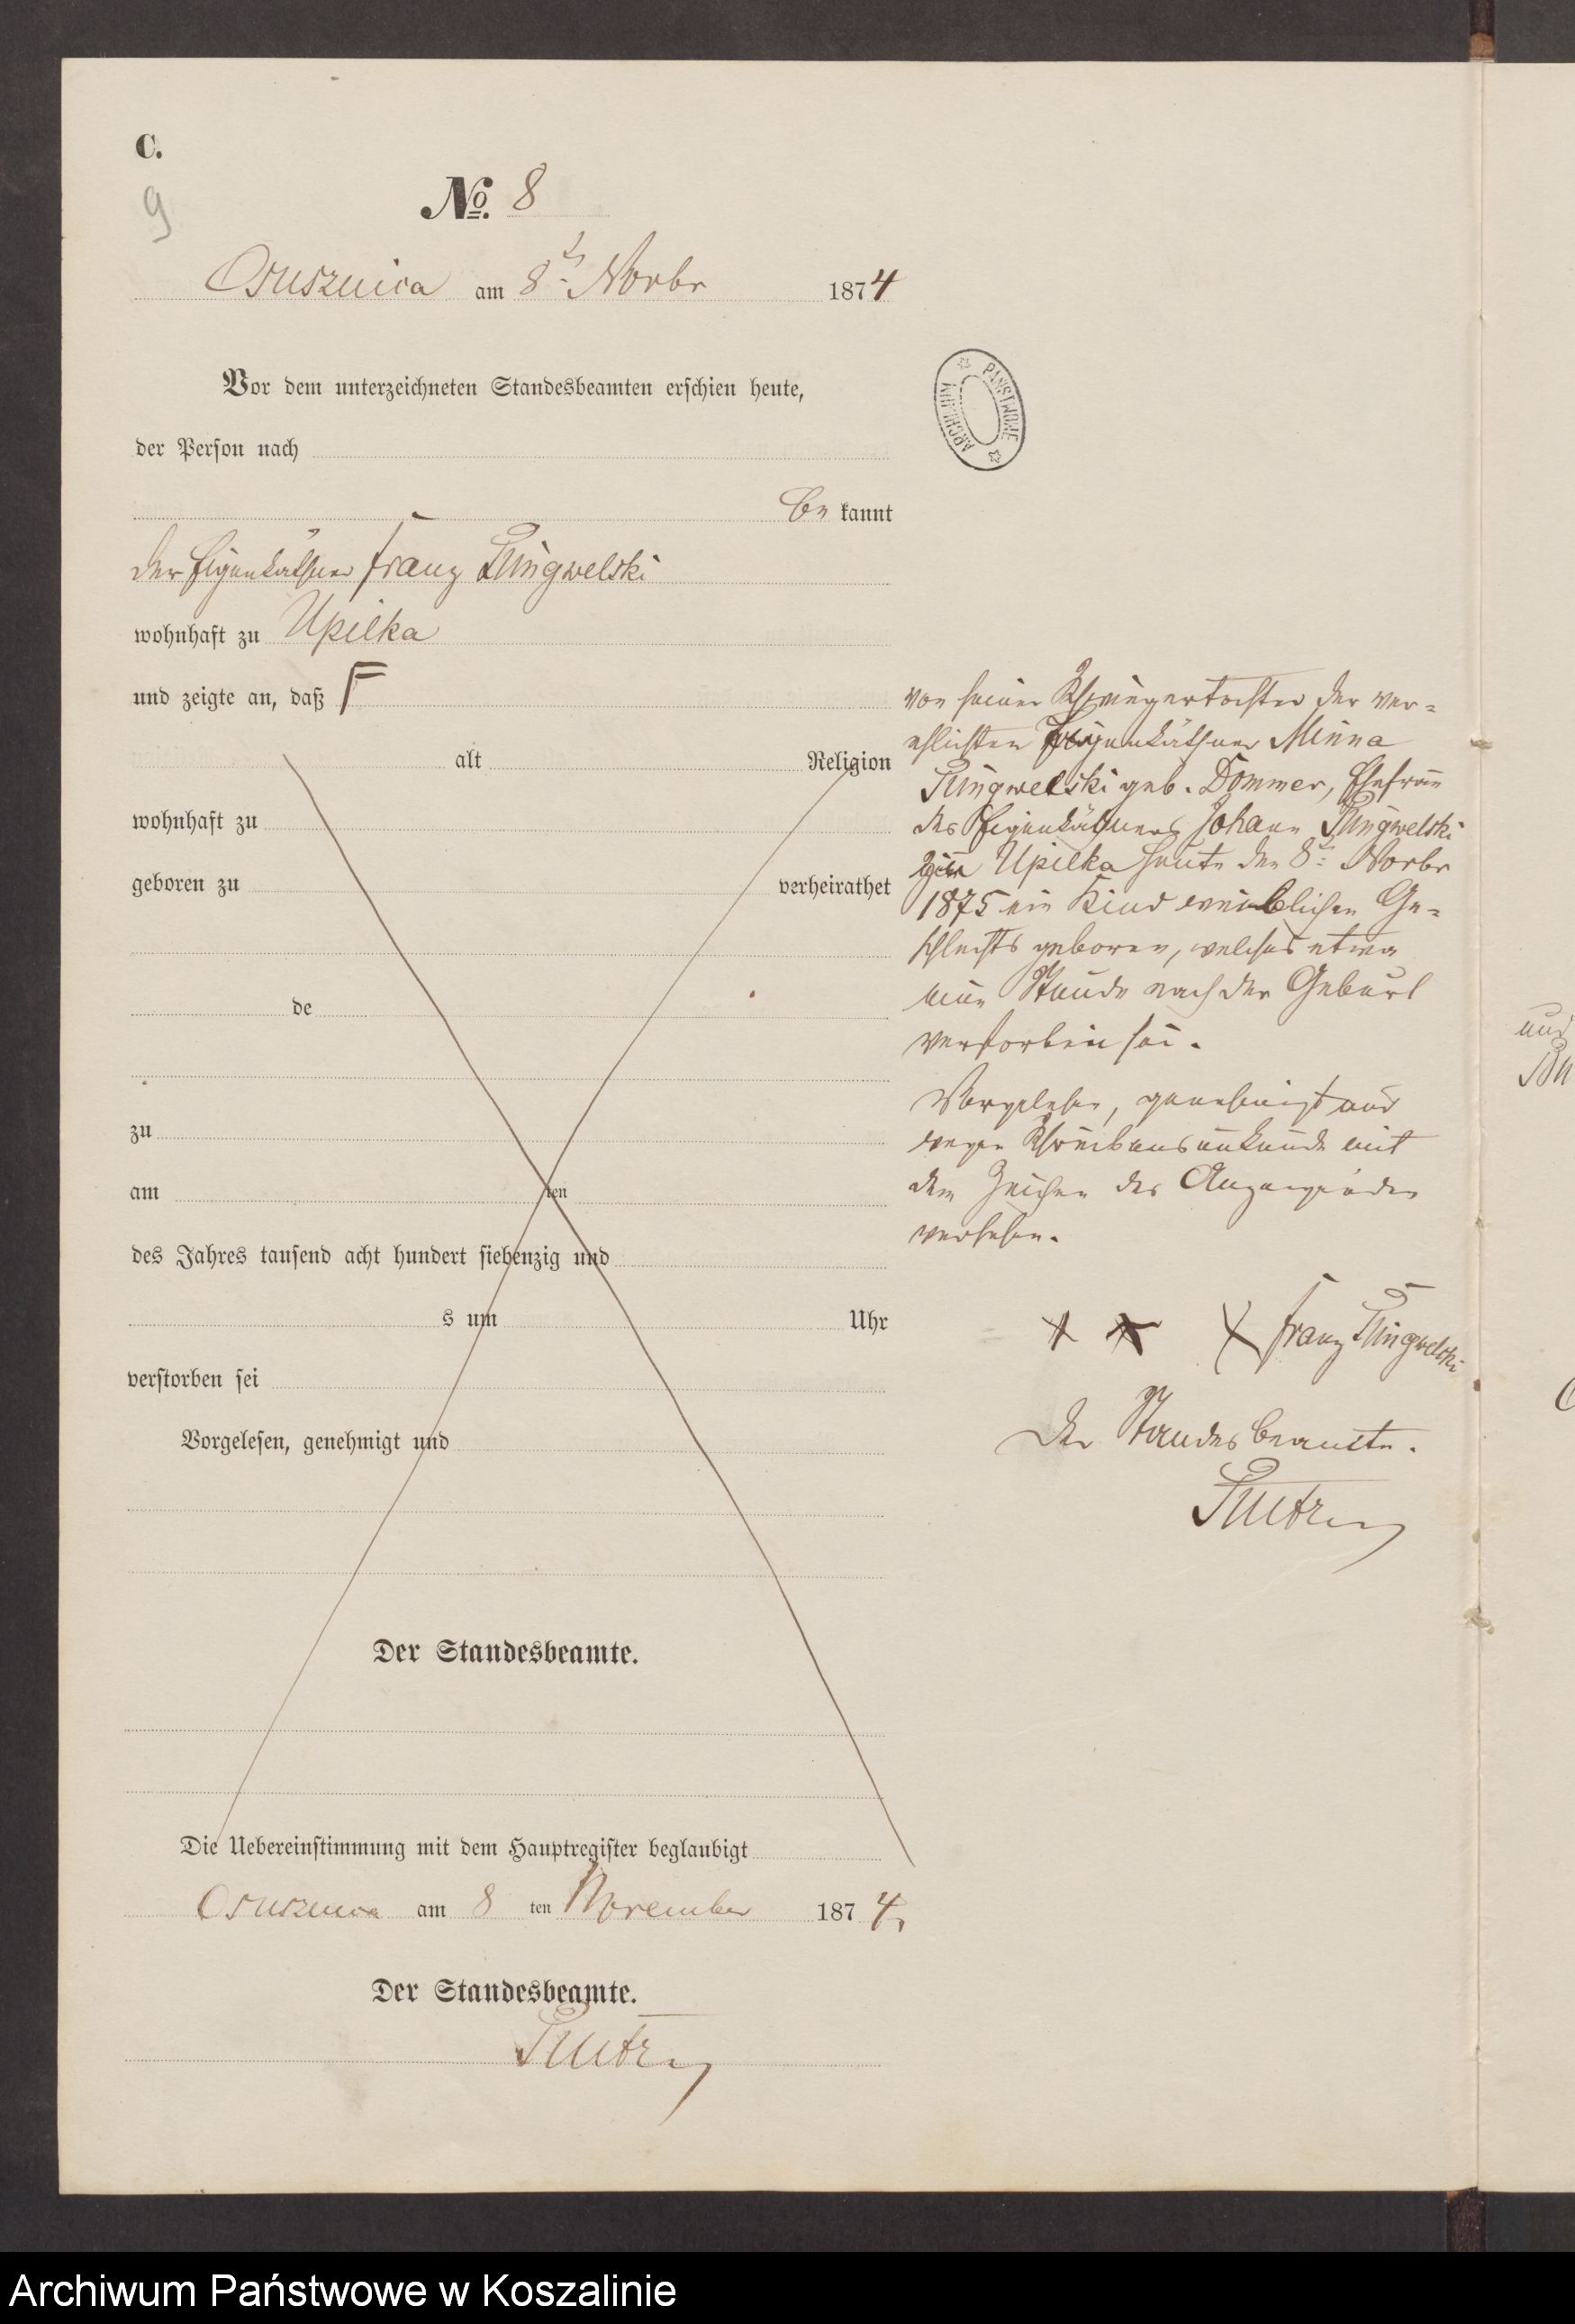 C.
9
No. 8
Osusznica am 8t. Novbr 1874
Vor dem unterzeichneten Standesbeamten erschien heute,
der Person nach
be kannt
der Eigenkäthner Franz Plungwelski
wohnhaft zu Upilka
und zeigte an, daß Γ
alt Religion
wohnhaft zu
geboren zu verheirathet
de
zu
am ten
des Jahres tausend acht hundert siebenzig und
s um Uhr
verstorben sei
Vorgelesen, genehmigt und
Der Standesbeamte.
Die Uebereinstimmung mit dem Hauptregister beglaubigt
Osusznica am 8 ten November 1874
Der Standesbeamte.
ARCHIWUM PAŃSTWOWE
von seiner Schwiegertochter der ver=
ehlichten Eigenkäthner Minna
geb. Dommer, Ehefrau
des Eigenkäthners Johann
Upilka heute den 8t. Novbr
1875 ein Kind weiblichen Ge=
schlechts geboren, welches etwa
eine Stunde nach der Geburt
verstorben sei.
Vorgelesen, genehmigt und
wegen Schreibensunkunde mit
dem Zeichen des Anzeigenden
versehen.
+ + + Franz
Der Standesbeamte.
und
Archiwum Państwowe w Koszalinie